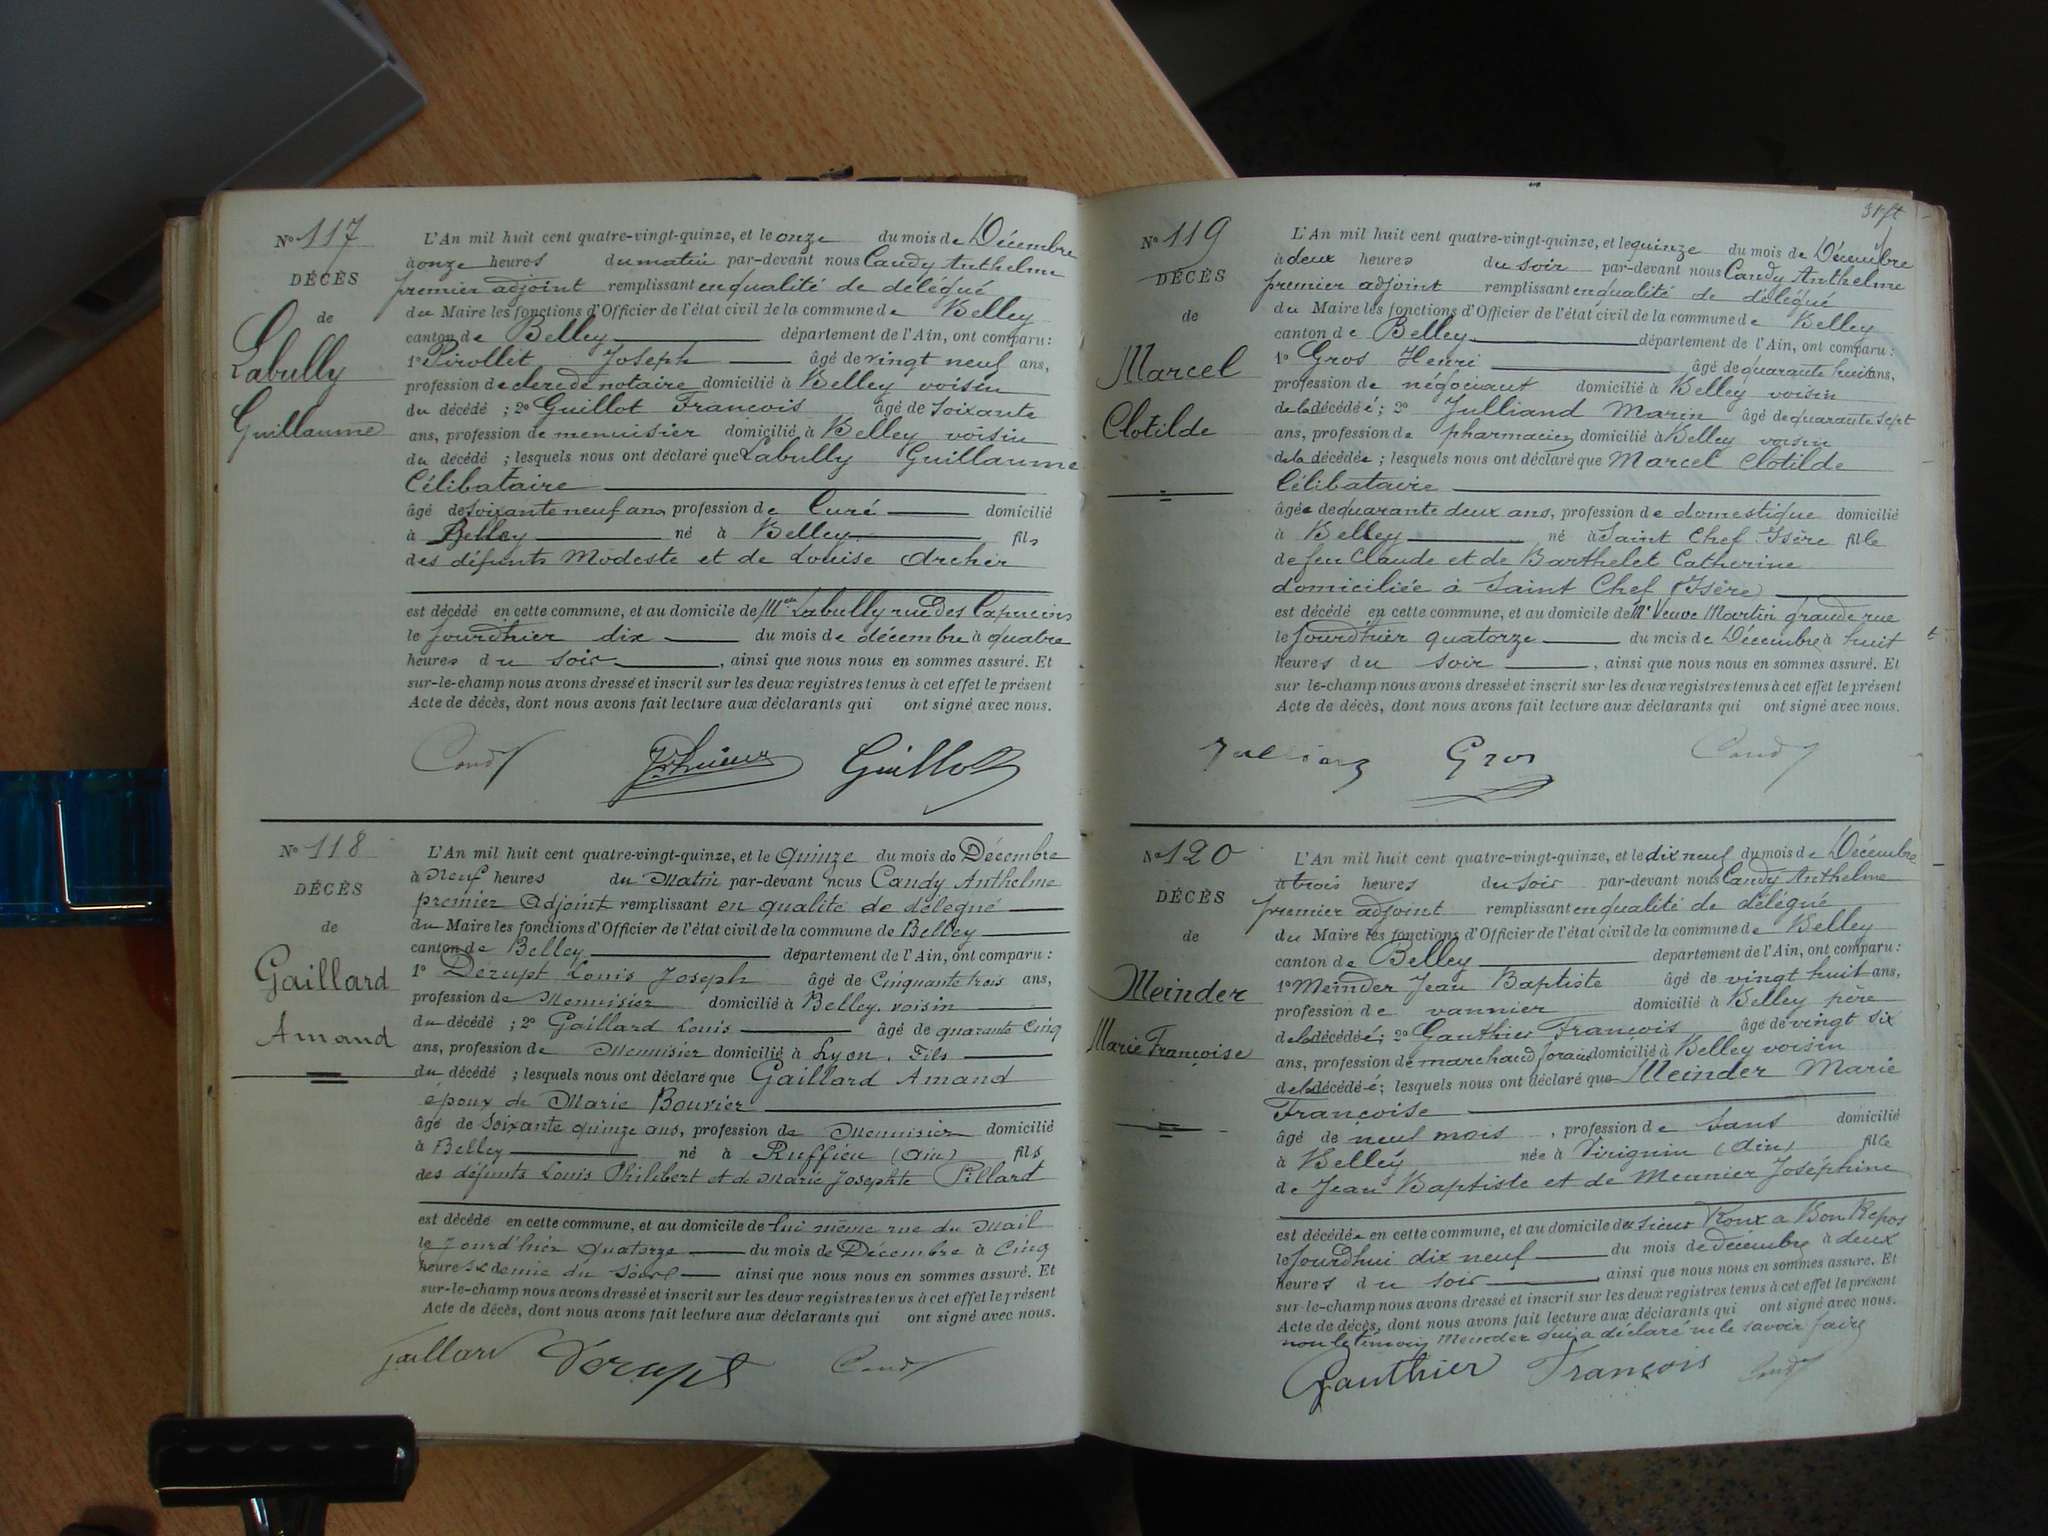 N° 117
DÉCÈS
de
Labully
Guillaume
L'An mil huit cent quatre-vingt-quinze, et le onze du mois de Décembre
à onze heures du matin par-devant nous Candy Anthelme
premier adjoint remplissant en qualité de délégué
du Maire les fonctions d'Officier de l'état civil de la commune de Belley
canton de Belley département de l'Ain, ont comparu :
1° Pirollet Joseph âgé de vingt neuf ans,
profession de clerc de notaire domicilié à Belley voisin
du décédé ; 2° Guillot François âgé de soixante
ans, profession de menuisier domicilié à Belley voisin
du décédé ; lesquels nous ont déclaré que Labully Guillaume
Célibataire
âgé de soixante neuf ans profession de Curé domicilié
à Belley né à Belley fils
des défunts Modeste et de Louise Archer
est décédé en cette commune, et au domicile de Labully rue des Capucins
le jourd'hier dix du mois de décembre à quatre
heures du soir, ainsi que nous nous en sommes assuré. Et
sur-le-champ nous avons dressé et inscrit sur les deux registres tenus à cet effet le présent
Acte de décès, dont nous avons fait lecture aux déclarants qui ont signé avec nous.
Candy Guillot
N° 118
DÉCÈS
de
Gaillard
Amand
L'An mil huit cent quatre-vingt-quinze, et le quinze du mois de Décembre
à Neuf heures du Matin par-devant nous Candy Anthelme
premier Adjoint remplissant en qualité de délégué
du Maire les fonctions d'Officier de l'état civil de la commune de Belley
canton de Belley département de l'Ain, ont comparu :
1° Derupt Louis Joseph âgé de Cinquante trois ans,
profession de Menuisier domicilié à Belley, voisin
du décédé ; 2° Gaillard Louis âgé de quarante cinq
ans, profession de Menuisier domicilié à Lyon. Fils
du décédé ; lesquels nous ont déclaré que Gaillard Amand
époux de Marie Bouvier
âgé de Soixante quinze ans, profession de Menuisier domicilié
à Belley né à Ruffieu (Ain) fils
des défunts Louis Philibert et de Marie Josephte Pillard
est décédé en cette commune, et au domicile de lui même rue du Mail
le jourd'hier quatorze du mois de Décembre à Cinq
heures & demie du soir ainsi que nous nous en sommes assuré. Et
sur-le-champ nous avons dressé et inscrit sur les deux registres tenus à cet effet le présent
Acte de décès, dont nous avons fait lecture aux déclarants qui ont signé avec nous.
Gaillard Derupt Candy
N° 119
DÉCÈS
de
Marcel
Clotilde
L'An mil huit cent quatre-vingt-quinze, et le quinze du mois de Décembre
à deux heures du soir par-devant nous Candy Anthelme
premier adjoint remplissant en qualité de délégué
du Maire les fonctions d'Officier de l'état civil de la commune de Belley
canton de Belley département de l'Ain, ont comparu :
1° Gros Henri âgé de quarante huit ans,
profession de négociant domicilié à Belley voisin
de la décédée ; 2° Julliand Marin âgé de quarante sept
ans, profession de pharmacien domicilié à Belley voisin
de la décédée ; lesquels nous ont déclaré que Marcel Clotilde
Célibataire
âgée de quarante deux ans, profession de domestique domicilié
à Belley né à Saint Chef Isère fille
de feu Claude et de Barthelet Catherine
domiciliée à Saint Chef (Isère)
est décédé en cette commune, et au domicile de Me Veuve Martin grande rue
le jourd'hier quatorze du mois de Décembre à huit
heures du soir, ainsi que nous nous en sommes assuré. Et
sur-le-champ nous avons dressé et inscrit sur les deux registres tenus à cet effet le présent
Acte de décès, dont nous avons fait lecture aux déclarants qui ont signé avec nous.
Julliand Gros Candy
N° 120
DÉCÈS
de
Meinder
Marie Françoise
L'An mil huit cent quatre-vingt-quinze, et le dix neuf du mois de Décembre
à trois heures du soir par-devant nous Candy Anthelme
premier adjoint remplissant en qualité de délégué
du Maire les fonctions d'Officier de l'état civil de la commune de Belley
canton de Belley département de l'Ain, ont comparu :
1° Meinder Jean Baptiste âgé de vingt huit ans,
profession de vannier domicilié à Belley père
de la décédée ; 2° Gauthier François âgé de vingt six
ans, profession de marchand forain domicilié à Belley voisin
de la décédée ; lesquels nous ont déclaré que Meinder Marie
Françoise
âgé de neuf mois, profession de sans domicilié
à Belley née à Virignin (Ain) fille
de Jean Baptiste et de Meunier Joséphine
est décédée en cette commune, et au domicile du sieur Roux a Bon Repos
le jourd'hui dix neuf du mois de décembre à deux
heures du soir, ainsi que nous nous en sommes assuré. Et
sur-le-champ nous avons dressé et inscrit sur les deux registres tenus à cet effet le présent
Acte de décès, dont nous avons fait lecture aux déclarants qui ont signé avec nous.
non le témoin Meinder qui a déclaré ne le savoir faire
Gauthier François Candy